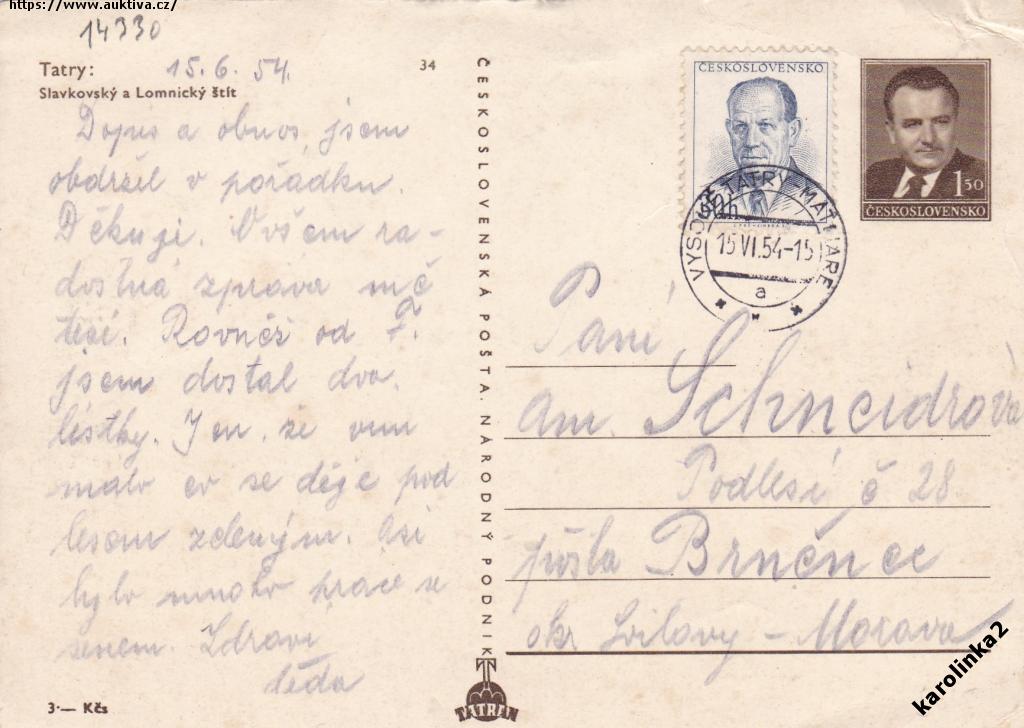 https://www.auktiva.cz/
14330
Tatry: 15. 6. 54.
Slavkovský a Lomnický štít
34
Dopis a obnos jsem
obdržel v pořádku.
Děkuji. Ovšem ra-
dostná zpráva mě
těší. Rovněž od F.
jsem dostal dva
lístky. Jen, že vím
málo co se děje pod
lesem zeleným. Asi
bylo mnoho práce se
senem. Zdraví
děda
3·— Kčs
ČESKOSLOVENSKÁ POŠTA, NÁRODNÝ PODNIK
TATRAN
ČESKOSLOVENSKO
30h
1 50
ČESKOSLOVENSKO
VYSOKÉ TATRY - MATLIARE
15.VI.54-15
a
Paní
Am. Schneidrová
Podlesí č 28
pošta Brněnec
okr Svitavy - Morava
karolinka2